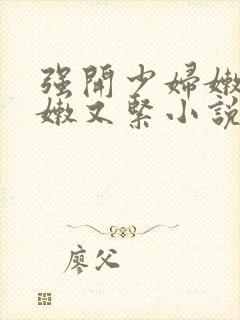 强開少婦嫩
嫩又緊小説
廖父